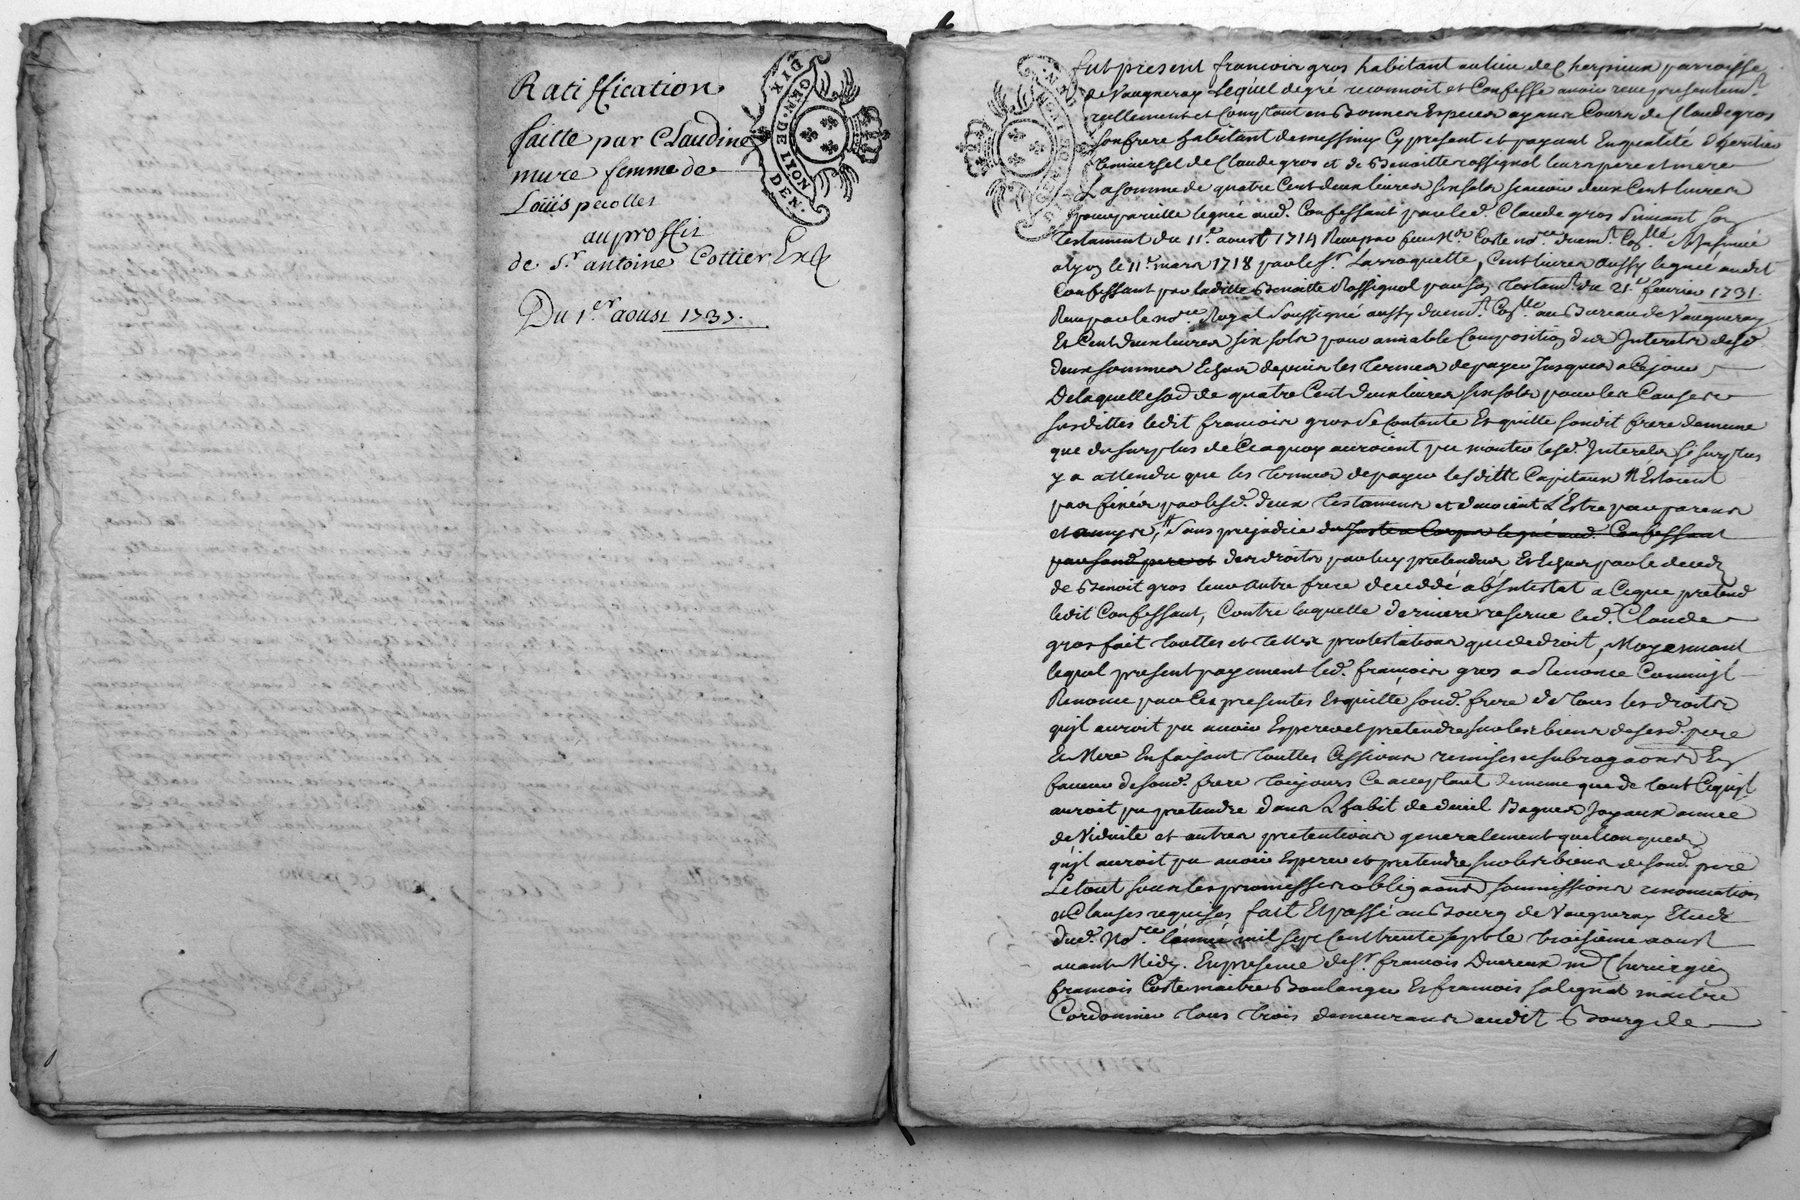 Ratiffication
faitte par Claudine
mure femme de
Louis pecollet
au proffit
de Sr. antoine Cottier Ex
Du 1er. aoust 1737.
GEN. DE LYON
DIX DEN.
fut present francois gros habitant au lieu de Cherpieux parroisse
de Vaugneray Lequel de gré reconnoit et Confesse avoir reçu presentemt
reellement et Comptant en Bonnes Especes ayant Cours de Claude gros
son frere habitant de messimy Cy present et payant En qualité d'heritier
Universel de Claude gros et de Benoitte rossignol leurs pere et mere
La somme de quatre Cent deux livres six sols scavoir deux Cent livres
pour pareille leguée aud. Confessant par led. Claude gros suivant son
testament du 11e. aoust 1714 Reçu par feu Me Coste nore duemt. Collé Insinué
a Lyon le 11e. mars 1718 par le Sr. Larroquette, Cent livres aussy leguée audit
Confessant par laditte Benoitte Rossignol par son testamt. du 21e. fevrier 1731.
Reçu par le nore. Royal soussigné aussy duemt. Collé au Bureau de Vaugneray
Et Cent deux livres six sols pour amiable Composition des Interets desd.
deux sommes Echus depuis les termes de payer Jusques a Ce jour
De laquelle sod. de quatre Cent deux livres six sols pour les Causes
susdittes ledit francois gros se Contente Et quitte sondit frere de meme
que du surplus de Ce a quoy auroient pu monter lesd. Interets si surplus
y a attendu que les termes de payer lesditts Capitaux N'Estoient
pas fixés par lesd. deux testamens et devoient L'Estre par parens
et amys, sans prejudice des Justes Corps legué aud. Confessant
par sond. pere et des droits par luy pretendus Et Echus par le deced
de Benoit gros leur autre frere decedé abintestat a Ce que pretend
ledit Confessant, Contre laquelle derniere reserve led. Claude
gros fait touttes et telles protestations que de droit, Moyennant
lequel present payement led. francois gros a Renoncé Comme Jl
Renonce par Ces presentes Et quitte sond. frere de tous les droits
qu'jl auroit pu avoir Esperer et pretendre sur les biens de sesd. pere
Et Mere En faisant touttes Cessions remises et subrogaons En
faveur de sond. frere toujours Ce acceptant de meme que de tout Ce qu'jl
auroit pu pretendre dans L'habit de deuil Bagues Joyaux année
de Viduité et autres pretentions generalement quelconques
qu'jl auroit pu avoir Esperer et pretendre sur les biens de sond. pere
Le tout sous les promesses obligaons soumissions renonciations
et Clauses requises fait Et passé au Bourg de Vaugneray Etude
dud. Nore. L'année mil sept Cent trente sept le troisieme aoust
avant Midy. En presence de Sr. francois Duereux me Chirurgien
francois Coste maitre Boulanger Et francois salignat maitre
Cordonnier tous trois demeurans audit Bourg de